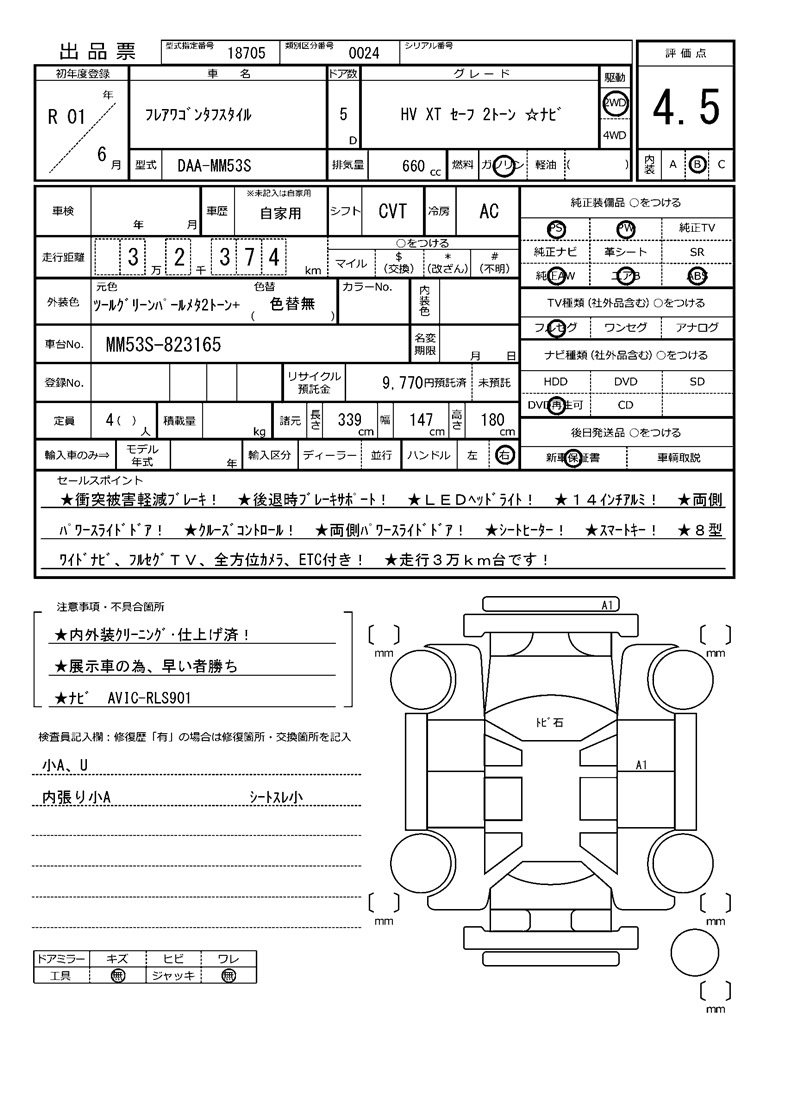 出品票 型式指定番号 18705 類別区分番号 0024 シリアル番号
評価点
4.5
内装 A B C
初年度登録 車名 ドア数 グレード 駆動
R 01 年 6 月 フレアワゴンタフスタイル 5 D HV XT セーフ 2トーン ☆ナビ 2WD
4WD
型式 DAA-MM53S 排気量 660 cc 燃料 ガソリン 軽油 ( )
車検 年 月 車歴 ※未記入は自家用 自家用 シフト CVT 冷房 AC
走行距離 3 万 2 千 3 7 4 km ○をつける
マイル $ (交換) * (改ざん) # (不明)
外装色 元色 ツールグリーンパールメタ2トーン+ 色替 ( 色替無 ) カラーNo. 内装色
車台No. MM53S-823165 名変期限 月 日
登録No. リサイクル預託金 9,770円預託済 未預託
定員 4 ( ) 人 積載量 kg 諸元 長さ 339 cm 幅 147 cm 高さ 180 cm
輸入車のみ⇒ モデル年式 年 輸入区分 ディーラー 並行 ハンドル 左 右
純正装備品 ○をつける
PS PW 純正TV
純正ナビ 革シート SR
純正AW エアB ABS
TV種類 (社外品含む) ○をつける
フルセグ ワンセグ アナログ
ナビ種類 (社外品含む) ○をつける
HDD DVD SD
DVD再生可 CD
後日発送品 ○をつける
新車保証書 車輌取説
セールスポイント
★衝突被害軽減ブレーキ！ ★後退時ブレーキサポート！ ★ＬＥＤヘッドライト！ ★１４インチアルミ！ ★両側
パワースライドドア！ ★クルーズコントロール！ ★両側パワースライドドア！ ★シートヒーター！ ★スマートキー！ ★８型
ワイドナビ、フルセグＴＶ、全方位カメラ、ETC付き！ ★走行３万ｋｍ台です！
注意事項・不具合箇所
★内外装クリーニング･仕上げ済！
★展示車の為、早い者勝ち
★ナビ AVIC-RLS901
検査員記入欄：修復歴「有」の場合は修復箇所・交換箇所を記入
小A、U
内張り小A シートスレ小
ドアミラー キズ ヒビ ワレ
工具 無 ジャッキ 無
A1
mm mm
トビ石
A1
mm mm
mm